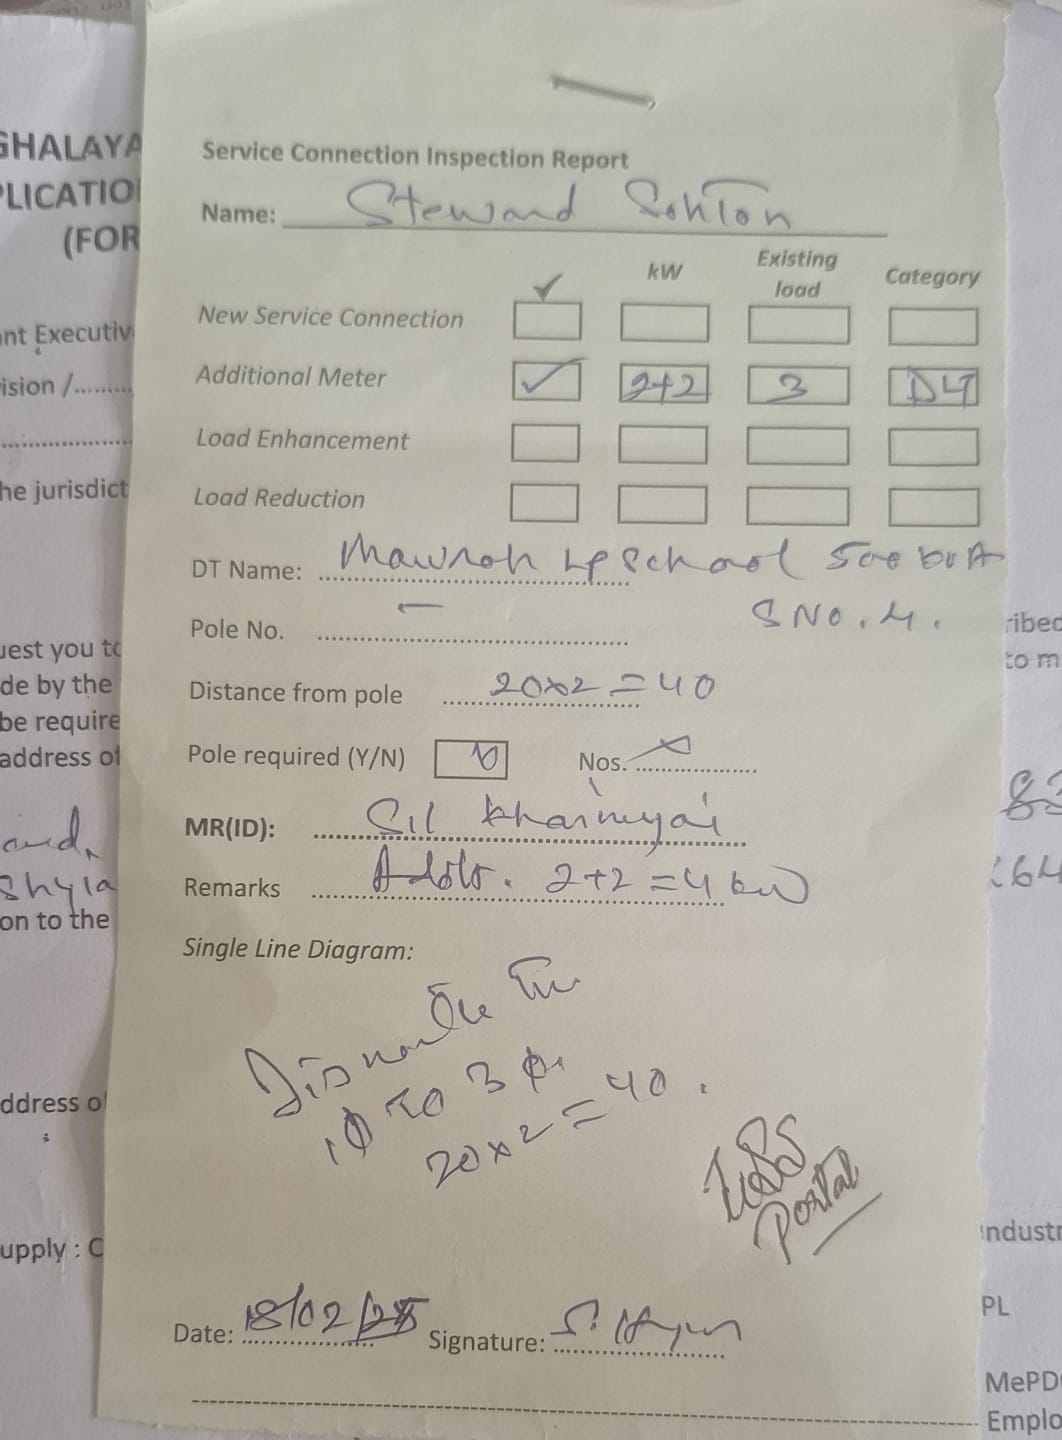 GHALAYA
PLICATIO
(FOR
nt Executiv
ision /.........
he jurisdict
uest you to
de by the
be require
address of
and,
Shyla
on to the
ddress o
upply : C
Service Connection Inspection Report
Name: Steward Sohton
✓ kW Existing load Category
New Service Connection
Additional Meter ✓ 2+2 3 DLT
Load Enhancement
Load Reduction
DT Name: Mawroh LP School 500 kVA
S No. 4.
Pole No. –
Distance from pole 20x2 = 40
Pole required (Y/N) N Nos. x
MR(ID): Sil
Remarks 2+2 = 4 kW
Single Line Diagram:
Dismantle the
1φ to 3 φ.
20x2 = 40.
Portal
Date: 18/02/25 Signature:
ribed
to m
83
64
ndustr
PL
MePD
Emplo